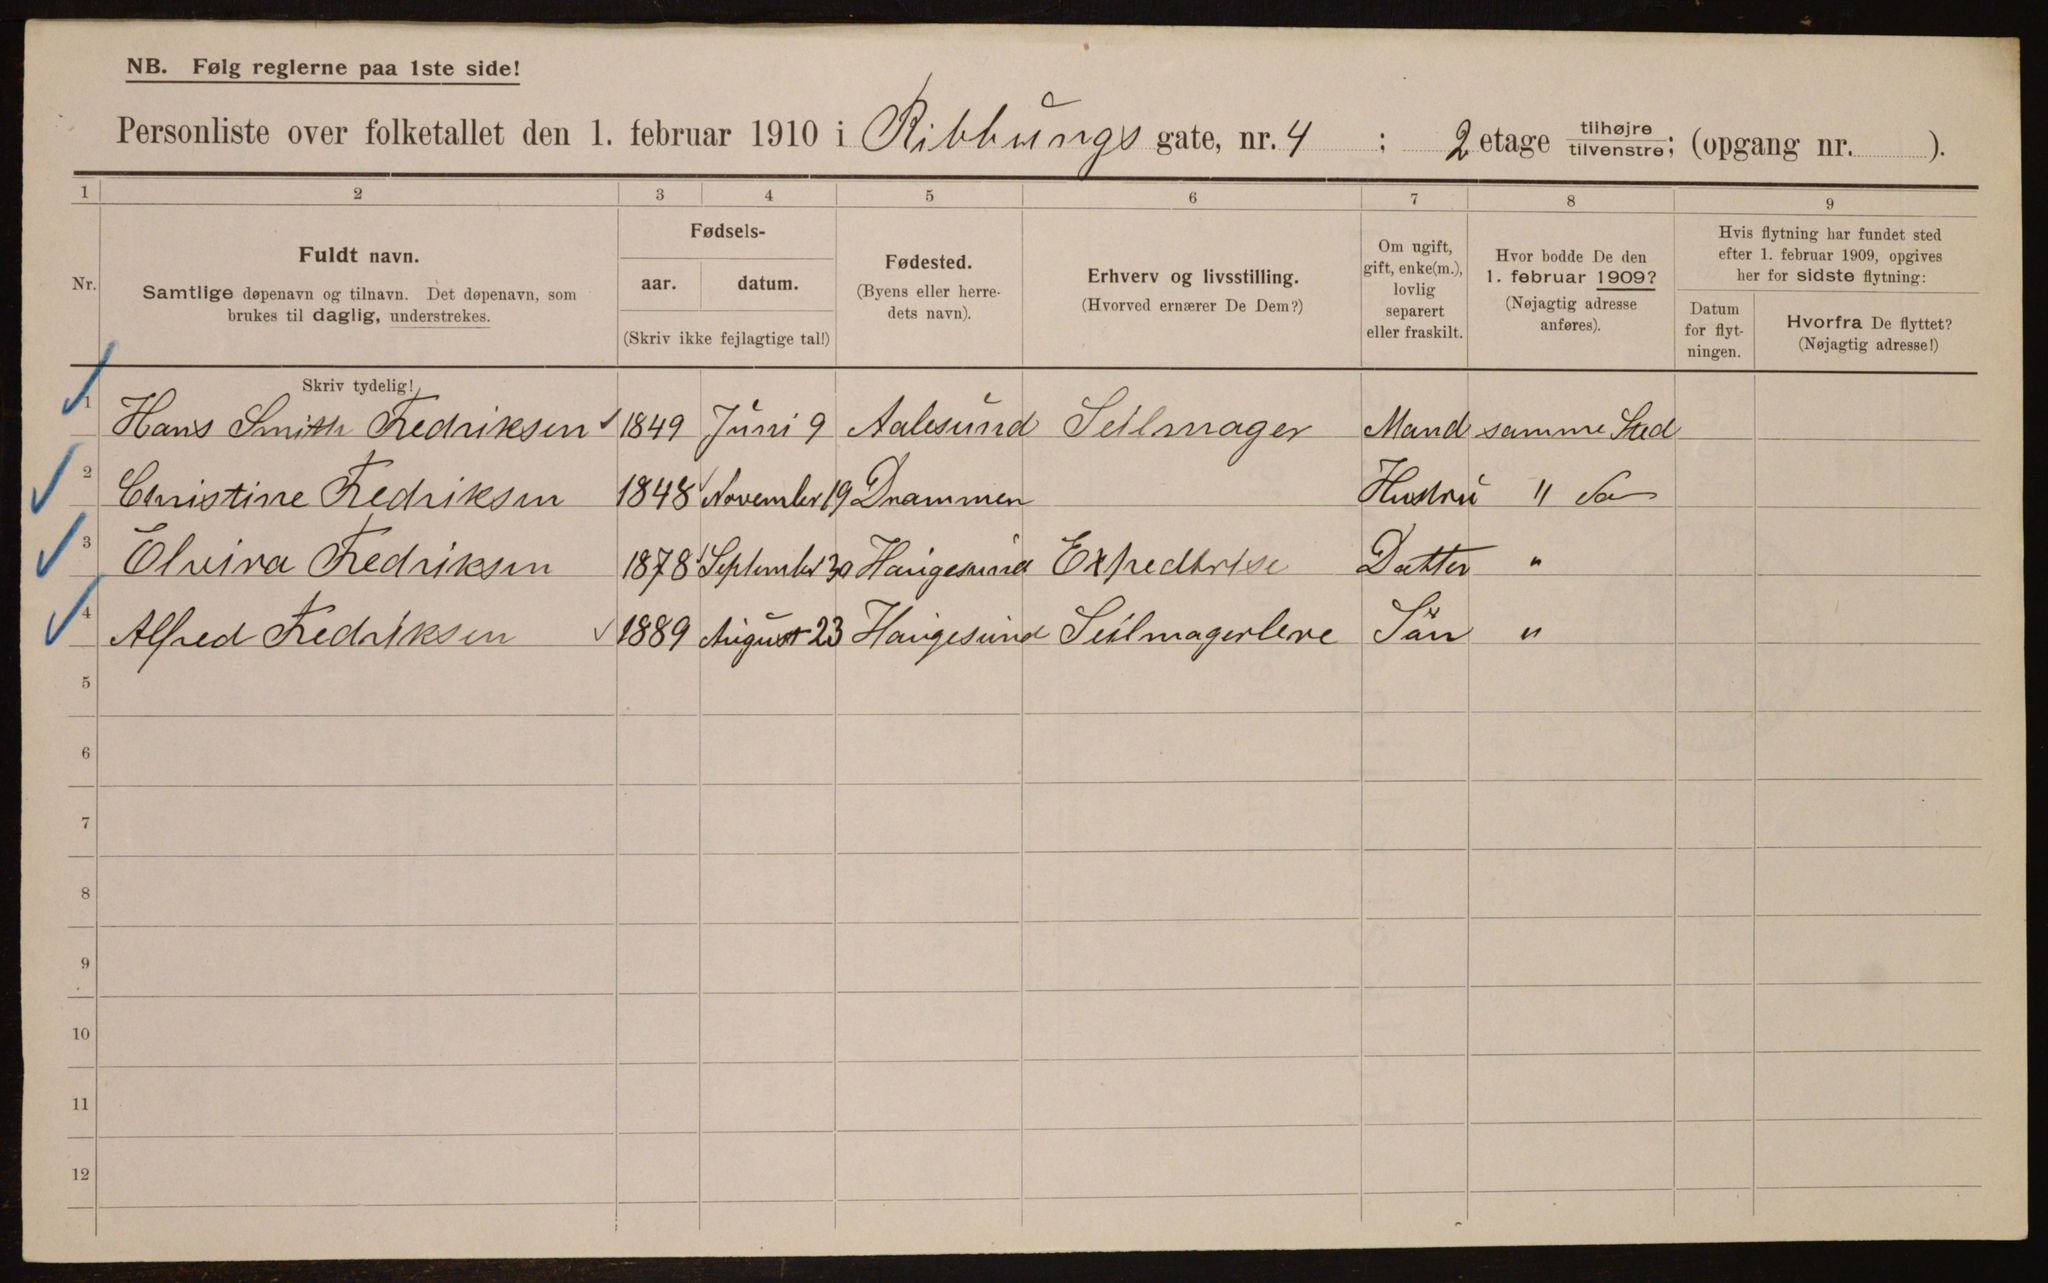 NB. Følg reglerne paa 1ste side!
Personliste over folketallet den 1. februar 1910 i Ribbungs gate, nr. 4 : 2 etage tilhøjre tilvenstre; (opgang nr. ).
1 2 3 4 5 6 7 8 9
Nr.
Fuldt navn.
Samtlige døpenavn og tilnavn. Det døpenavn, som
brukes til daglig, understrekes.
Fødsels-
aar. datum.
(Skriv ikke fejlagtige tal!)
Fødested.
(Byens eller herre-
dets navn).
Erhverv og livsstilling.
(Hvorved ernærer De Dem?)
Om ugift,
gift, enke(m.),
lovlig
separert
eller fraskilt.
Hvor bodde De den
1. februar 1909?
(Nøjagtig adresse
anføres).
Hvis flytning har fundet sted
efter 1. februar 1909, opgives
her for sidste flytning:
Datum
for flyt-
ningen.
Hvorfra De flyttet?
(Nøjagtig adresse!)
Skriv tydelig!
1 Hans Smith Fredriksen 1849 Juni 9 Aalesund Seilmager Mand samme Sted
2 Christine Fredriksen 1848 November 19 Drammen Hustru "
3 Elvira Fredriksen 1878 September 30 Haugesund Expeditrise Datter "
4 Alfred Fredriksen 1889 August 23 Haugesund Seilmagerlere Sön "
5
6
7
8
9
10
11
12